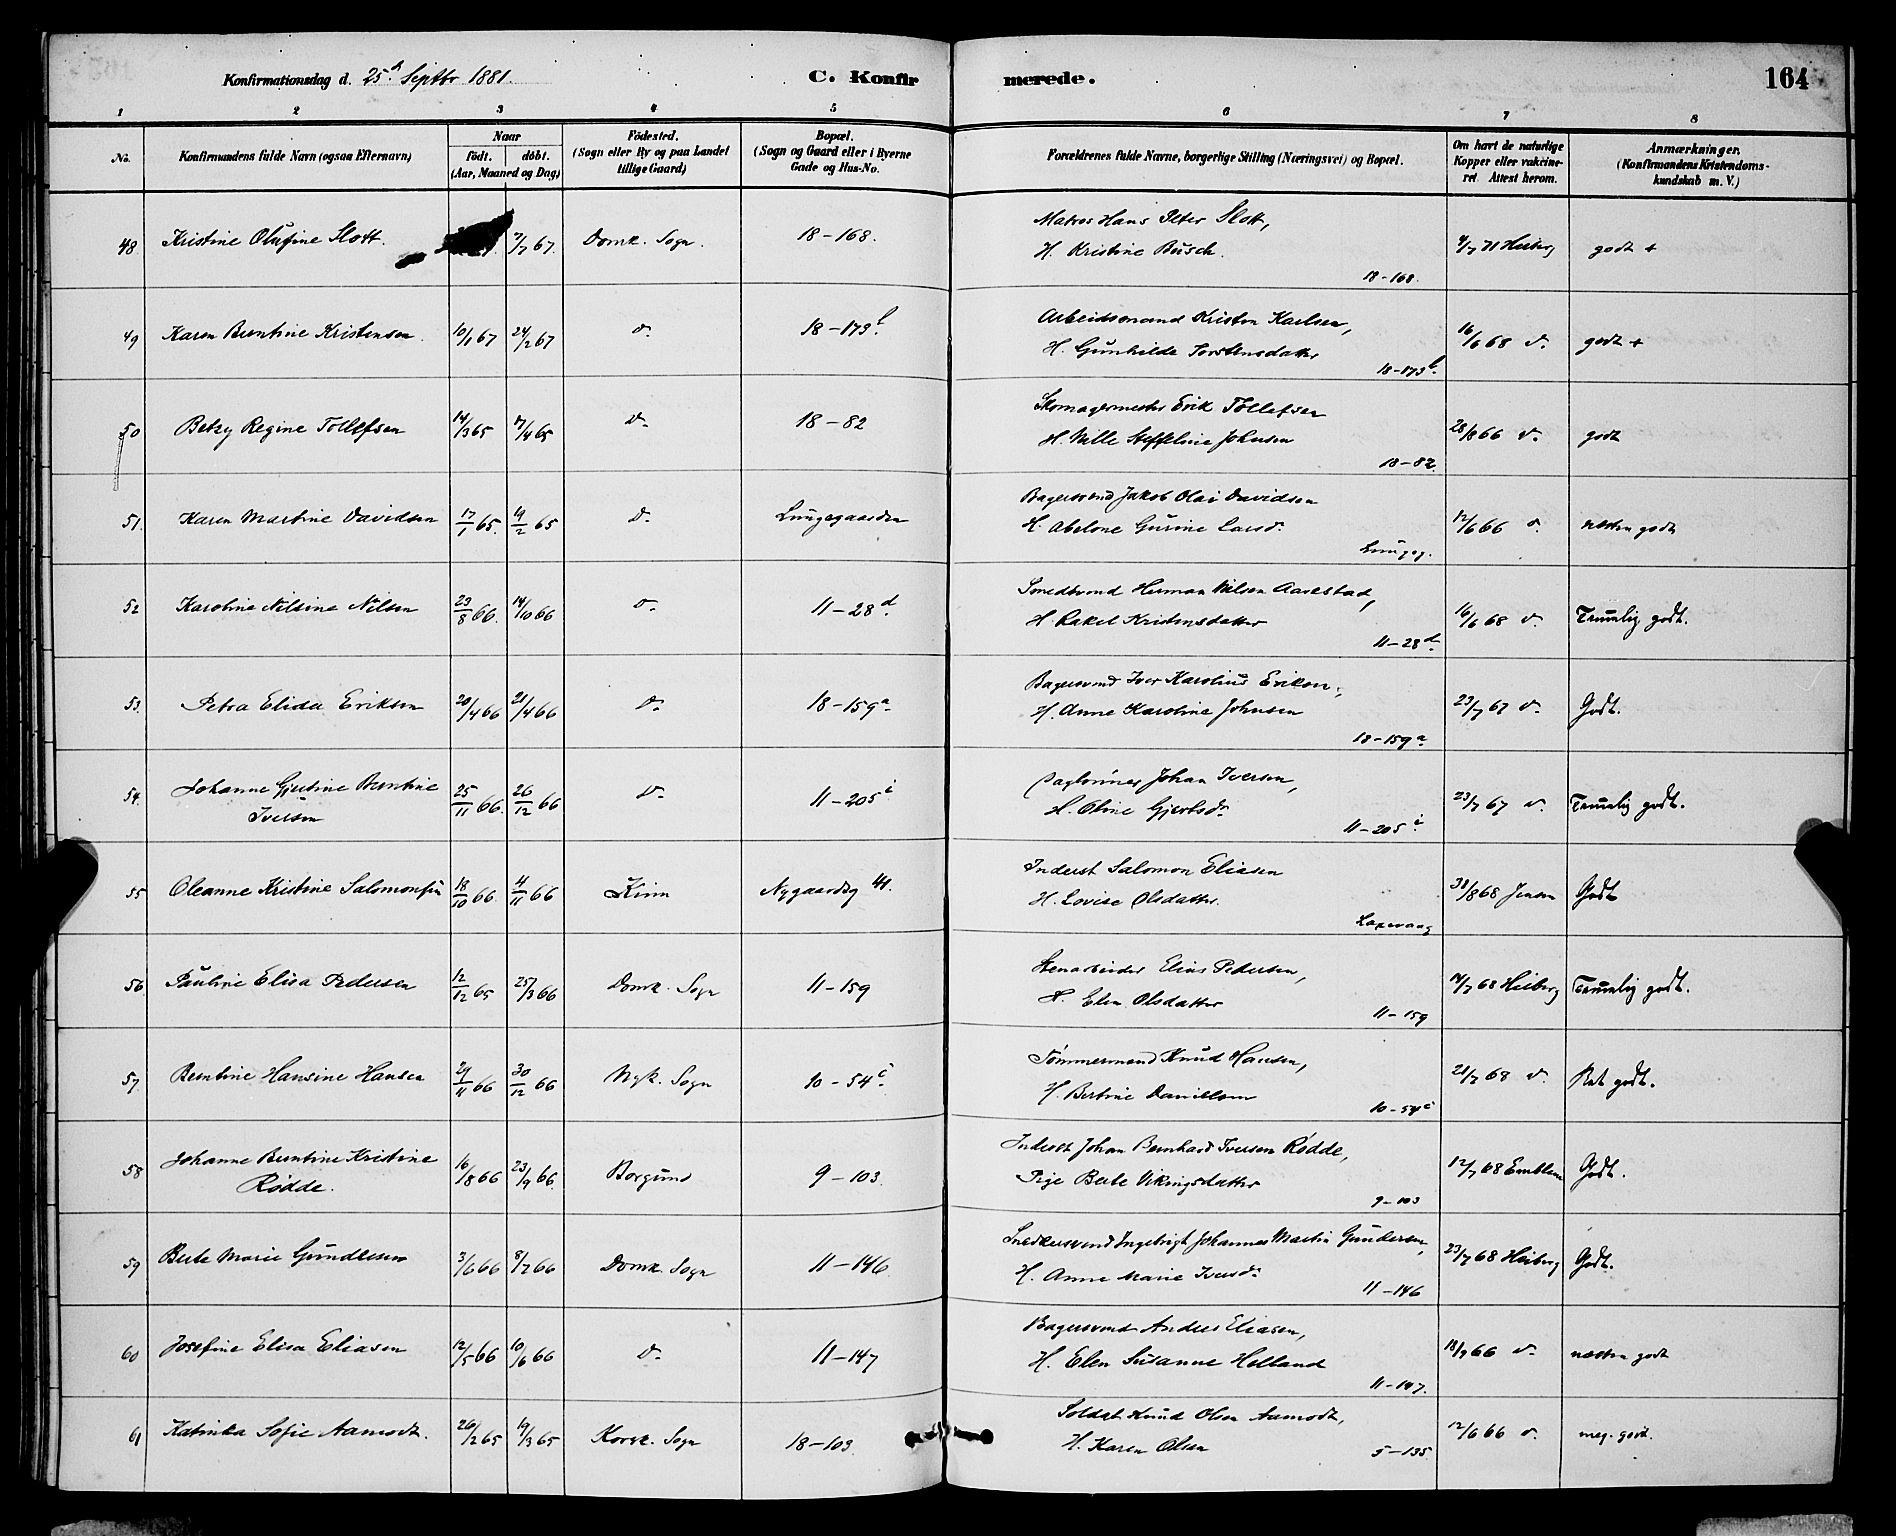 Konfirmationsdag d. 25de Septbr 1881. C. Konfirmerede. 164
1 2 3 4 5 6 7 8
No. Konfirmandens fulde Navn (ogsaa Efternavn) Naar født. døbt. (Aar, Maaned og Dag) Fødested. (Sogn eller By og paa Landet tillige Gaard) Bopæl. (Sogn og Gaard eller i Byerne Gade og Hus-No. Forældrenes fulde Navne, borgerlige Stilling (Næringsvei) og Bopæl. Om havt de naturlige Kopper eller vakcineret. Attest herom. Anmærkninger. (Konfirmandens Kristendomskundskab m. V.)
48 Kristine Olufine Slott. 7/7 67. Domk. Sogn. 18-168. Matros Hans Peter Slott, H. Kristine Busch. 18-168. 4/7 71 Heiberg godt +
49 Karen Berntine Kristensen. 10/1 67 24/2 67 do. 18-173 b. Arbeidsmand Kristen Karlsen, H. Gunhilde Torstensdatter 18-173 b. 16/6 68 do. godt +
50 Betzy Regine Tollefsen 14/3 65 17/4 65 do. 18-82 Skomagermester Erik Tollefsen H. Nille Steffeline Johnsen 18-82. 28/8 66 do. godt
51. Karen Martine Davidsen 17/1 65. 4/2 65 do. Lungegaarden Bagersvend Jakob Olai Davidsen H. Abelone Gurine Larsd. Lungeg. 12/6 66 do. næsten godt
52 Karoline Nilsine Nilsen 23/8 66. 14/10 66 do. 11-28 d. Smedsvend Herman Nilsen Aarestad, H. Rakel Kristensdatter 11-28 d. 16/6 68 do. Temmelig godt.
53. Petra Elida Eriksen 20/4 66 21/4 66 do. 18-159 a. Bagersvend Iver Karolius Eriksen, H. Anne Karoline Johnsen 18-159 a. 23/7 67 do. Godt.
54. Johanne Gjertine Berntine Iversen 25/11 66. 26/12 66 do. 11-205 i Daglønner Johan Iversen, H. Oline Gjertsd. 11-205 i. 23/7 67 do. Temmelig godt.
55 Oleanne Kristine Salomonsen 18/10 66. 4/11 66 Kinn Nygaardsg 41. Inderst Salomon Eliasen H. Lovise Olsdatter. Laxevaag 31/8 68 Jensen Godt
56. Pauline Elisa Pedersen 12/12 65 25/3 66 Domk. Sogn 11-159 Stenarbeider Elias Pedersen, H. Elen Olsdatter 11-159 14/7 68 Heiberg Temmelig godt.
57. Berntine Hansine Hansen 24/11 66 30/12 66 Nyk. Sogn 10-54 c. Tømmermand Knud Hansen, H. Bertine Danielsen 10-54 c 21/7 68 do. Ret godt.
58 Johanne Berntine Kristine Rødde. 16/8 66 23/9 66. Borgund 9-103. Inderst Johan Bernhard Iversen Rødde, Pige Berte Vikingsdatter 9-103 12/7 68 Emblem Godt.
59 Berte Marie Gundersen 3/6 66 8/7 66 Domk. Sogn 11-146 Snedkersvend Ingebrigt Johannes Martin Gundersen, H. Anne Marie Iversd. 11-146 23/7 68 Heiberg Godt.
60 Josefine Elisa Eliasen 12/5 66 10/6 66 do. 11-147 Bagersvend Anders Eliasen, H. Elen Susanne Helland 11-147. 18/9 66 do. næsten godt
61 Katinka Sofie Aamodt. 26/2 65 19/3 65 Korsk. Sogn 18-103. Soldat Knud Olsen Aamodt, H. Karen Olsen 5-135. 12/6 66 do. meg. godt.